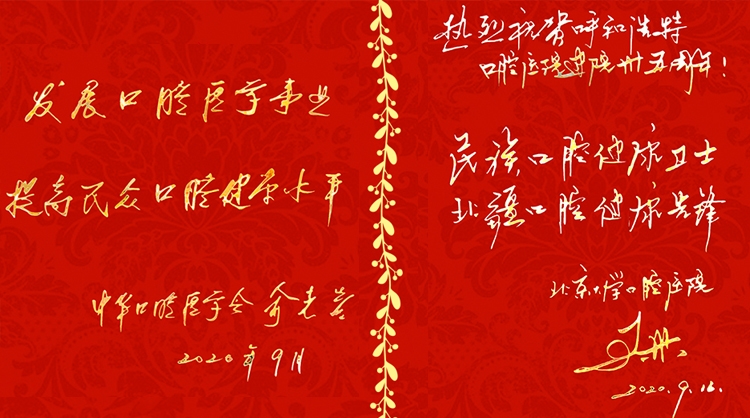 发展口腔医学事业
提高民众口腔健康水平
中华口腔医学会 俞光岩
2020年9月
热烈祝贺呼和浩特
口腔医院建院卅五周年!
民族口腔健康卫士
北疆口腔健康先锋
北京大学口腔医院
2020.9.16.